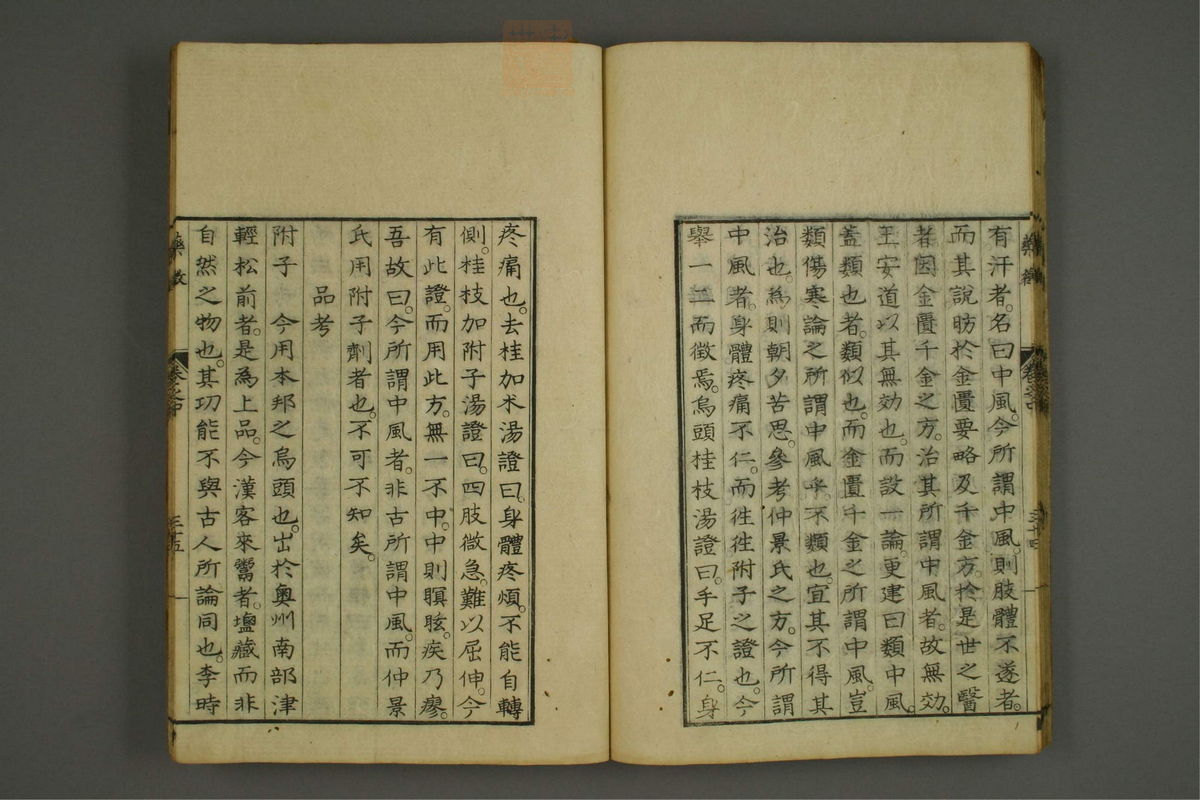 有汗者。名曰中風。今所謂中風。則肢體不遂者。
而其說昉於金匱要略及千金方。於是世之醫
者。因金匱千金之方。治其所謂中風者。故無効。
王安道以其無効也。而設一論。更建曰類中風。
蓋類也者。類似也。而金匱千金之所謂中風。豈
類傷寒論之所謂中風乎。不類也。宜其不得其
治也。為則朝夕苦思。參考仲景氏之方。今所謂
中風者。身體疼痛不仁。而徃徃附子之證也。今
舉一二而徵焉。烏頭桂枝湯證曰。手足不仁。身
藥徵
卷之中
三十四
疼痛也。去桂加朮湯證曰。身體疼煩。不能自轉
側。桂枝加附子湯證曰。四肢微急。難以屈伸。今
有此證。而用此方。無一不中。中則瞑眩。疾乃瘳。
吾故曰。今所謂中風者。非古所謂中風。而仲景
氏用附子劑者也。不可不知矣。
品考
附子 今用本邦之烏頭也。出於奥州南部津
輕松前者。是為上品。今漢客來鬻者。鹽藏而非
自然之物也。其功能不與古人所論同也。李時
藥徵
卷之中
三十五